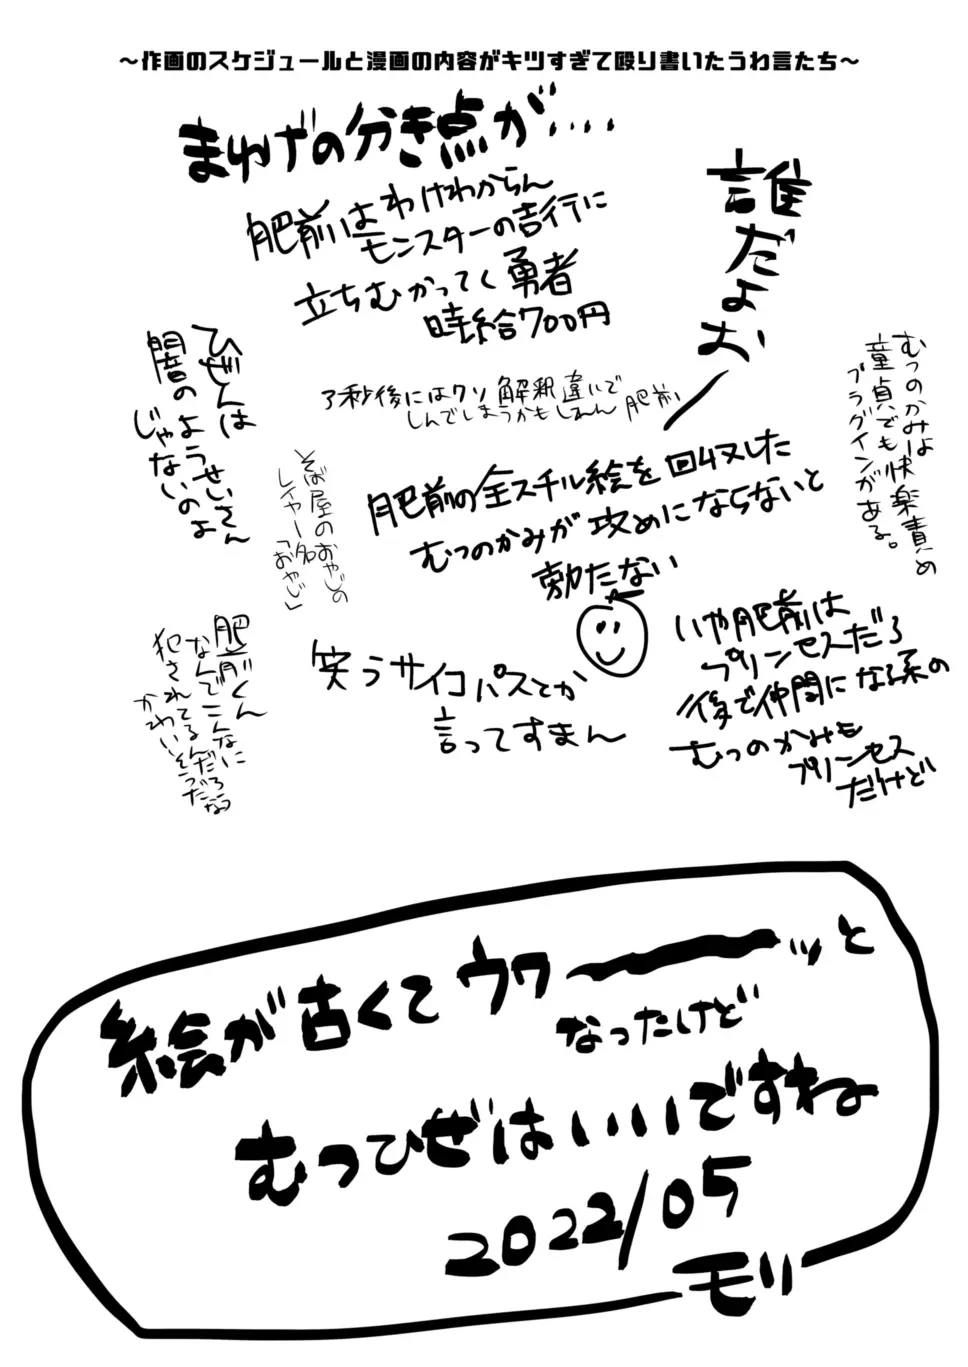 ～作画のスケジュールと漫画の内容がキツすぎて殴り書いたうわ言たち～
まゆげの分き点が‥‥
肥前はわけわからん
モンスターの吉行に
立ちむかってく勇者
時給700円
誰だよお
ひぜんは
闇のようせいさん
じゃないのよ
3秒後にはクソ解釈違いで
しんでしまうかもしれん肥前
むつのかみよ
童貞でも快楽責め
プラグインがある。
そば屋のおやじの
レイヤー名
「おやじ」
肥前の全スチル絵を回収した
むつのかみが攻めにならないと
勃たない
肥前くん
なんでこんなに
犯されてるんだろうな
かわいそうだな
笑うサイコパスとか
言ってすまん
いや肥前は
プリンセスだろ
後で仲間になる系の
むつのかみも
プリンセス
だけど
絵が古くてウワーーーッと
なったけど
むつひぜはいいですね
2022/05
モリ